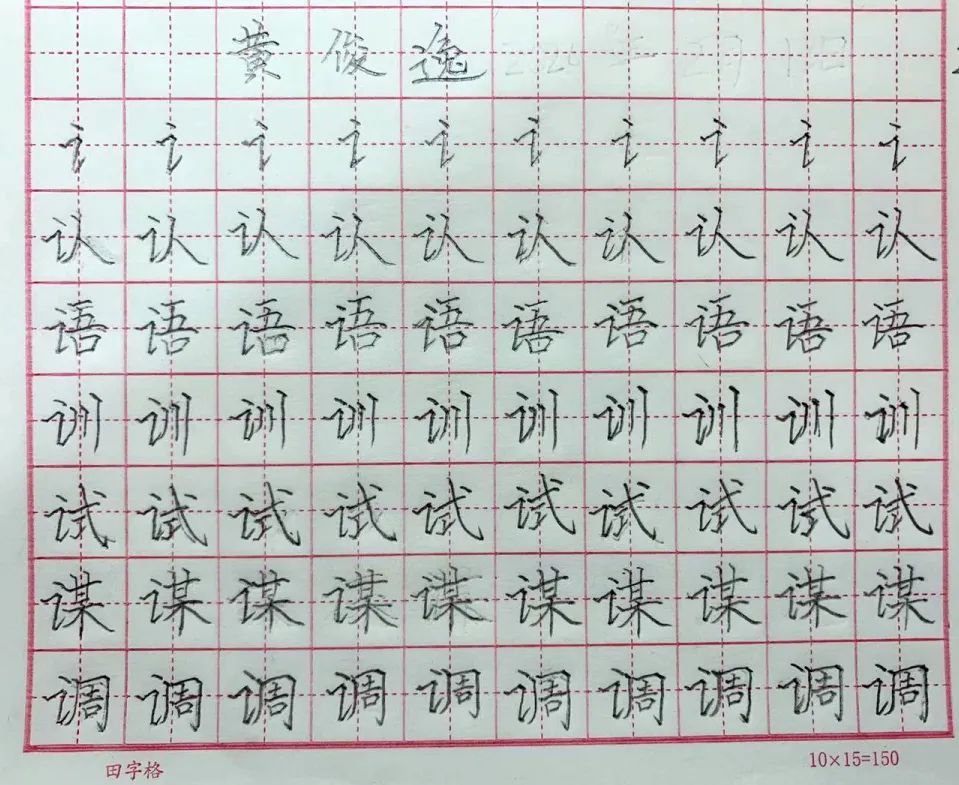 黄俊逸 2026年2月10日
讠讠讠讠讠讠讠讠讠讠
认认认认认认认认认认
语语语语语语语语语语
训训训训训训训训训训
试试试试试试试试试试
谋谋谋谋谋谋谋谋谋谋
调调调调调调调调调调
田字格 10×15=150